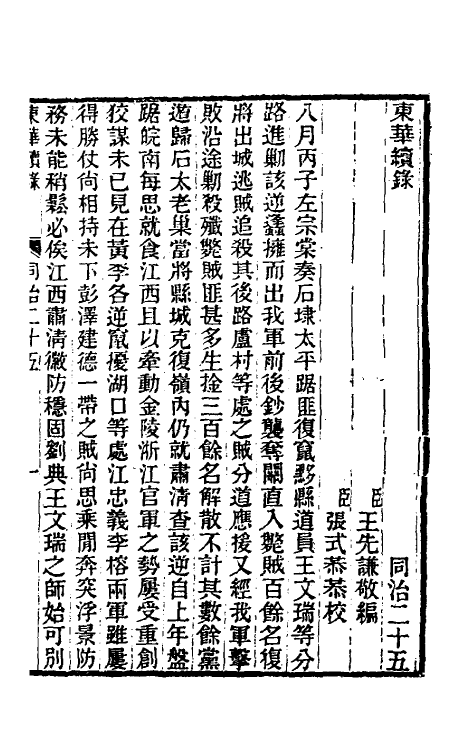 東華續錄
同治二十五
臣王先謙敬編
臣張式恭恭校
八月丙子左宗棠奏石埭太平踞匪復竄黟縣道員王文瑞等分
路進勦該逆蠭擁而出我軍前後鈔襲奪關直入斃賊百餘名復
將出城逃賊追殺其後路盧村等處之賊分道應後又經我軍擊
敗沿途勦殺殲斃賊匪甚多生擒三百餘名解散不計其數餘黨
遁歸石太老巢當將縣城克復嶺內仍就肅清查該逆自上年盤
踞皖南每思就食江西且以牽動金陵浙江官軍之勢屢受重創
狡謀未已見在黃李各逆竄擾湖口等處江忠義李榕兩軍雖屢
得勝仗尙相持未下彭澤建德一帶之賊尙思乘閒奔突浮景防
務未能稍鬆必俟江西肅淸徽防穩固劉典王文瑞之師始可別
東華續錄
同治二十五
一